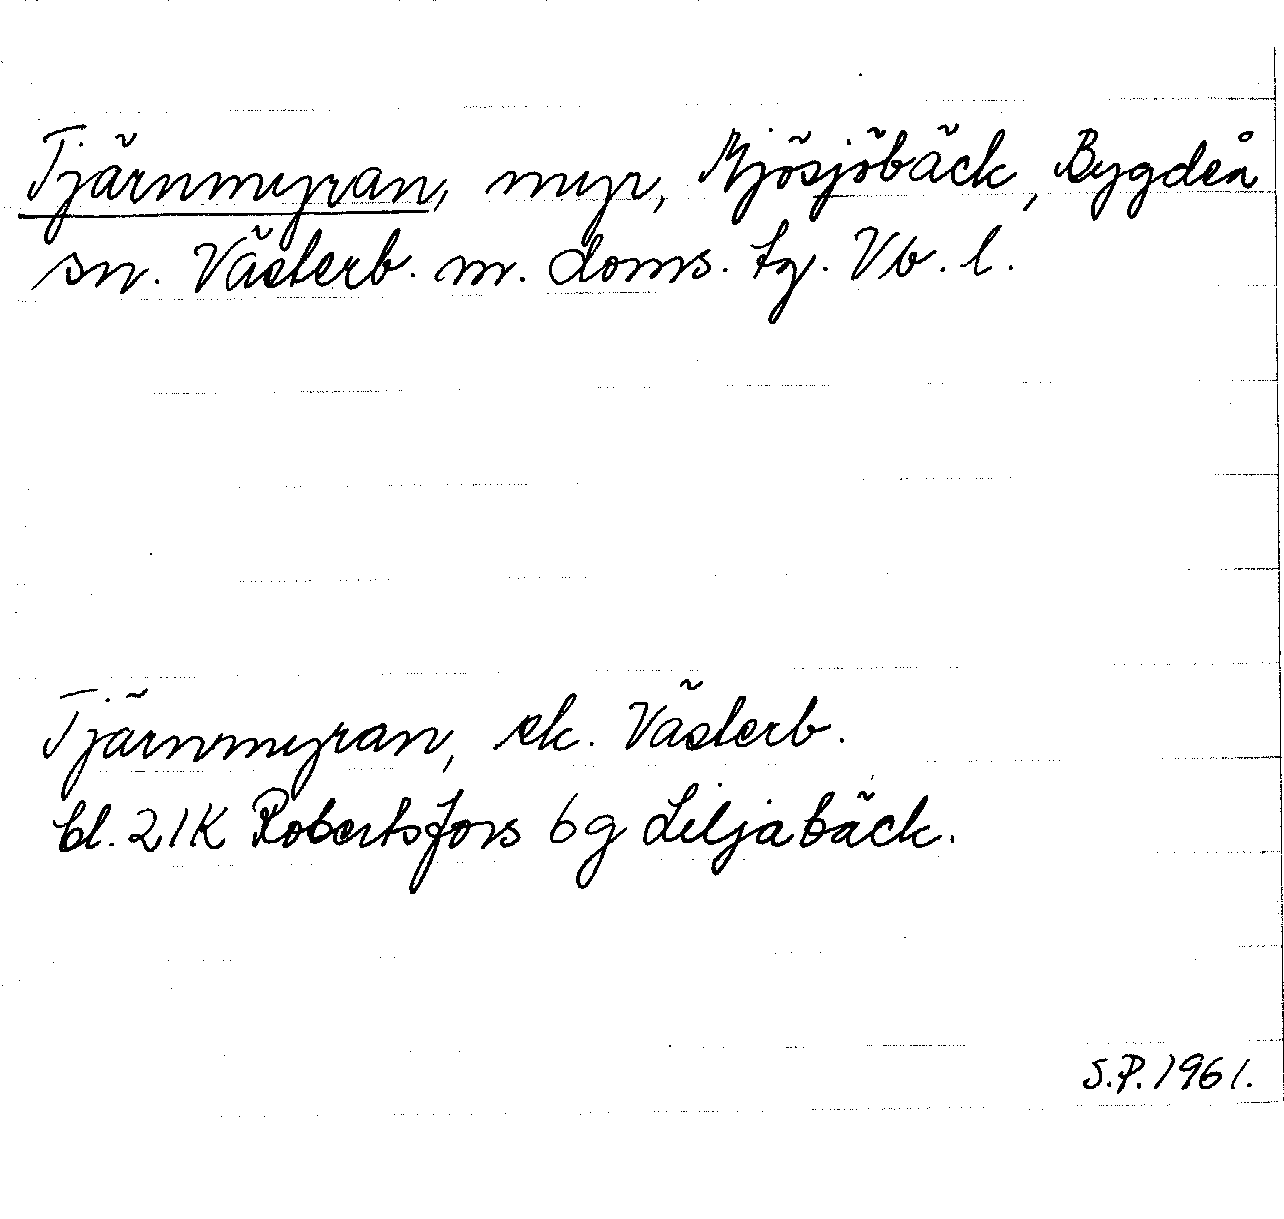 Tjärnmyran, myr, Mjösjöbäck, Bygdeå
sn. Västerb. m. doms. tg. Vb. l.
Tjärnmyran, ek. Västerb.
bl. 21K Robertsfors 6g Liljabäck.
S.P. 1961.